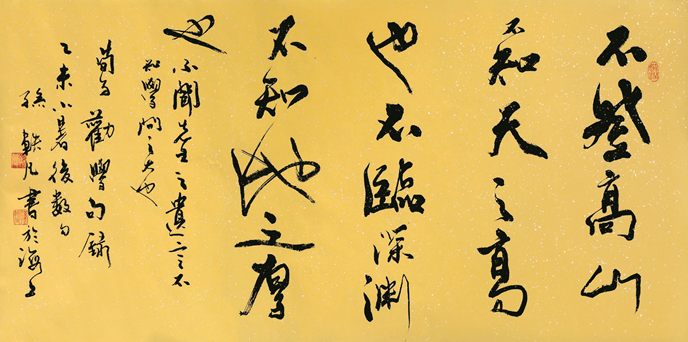 不登高山
不知天之高
也不臨深淵
不知地之厚
也
不聞先王之遺言不
知學問之大也
荀子勸學句錄
乙未小暑後數日
孫軼凡書於海上